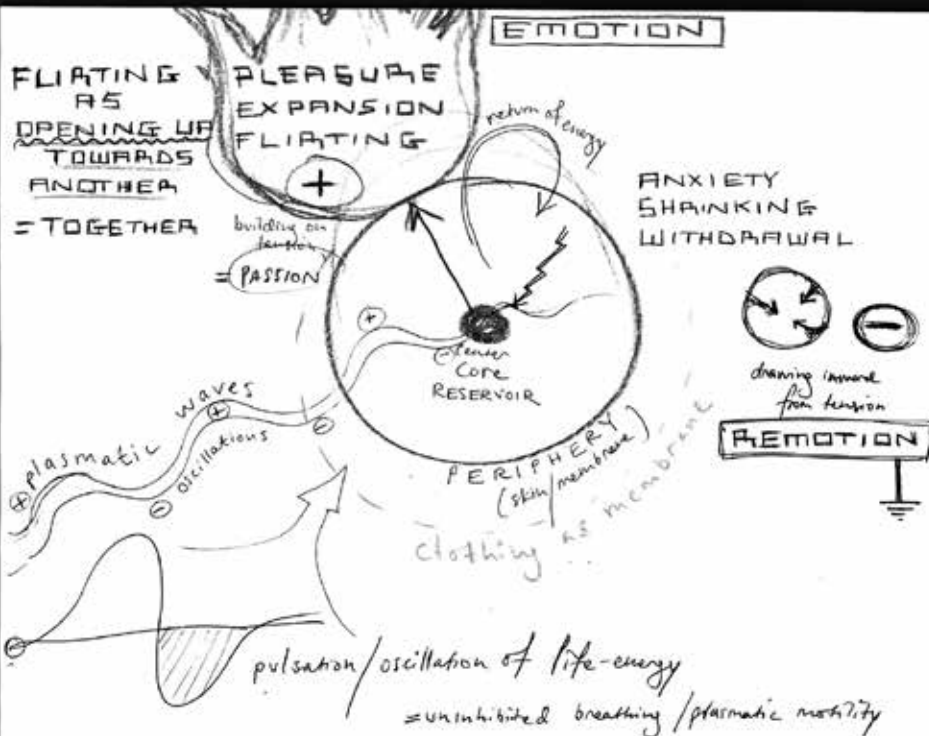 EMOTION
FLIRTING
AS
OPENING UP
TOWARDS
ANOTHER
= TOGETHER
PLEASURE
EXPANSION
FLIRTING
+
building on
tension
= PASSION
return of energy
ANXIETY
SHRINKING
WITHDRAWAL
−
drawing inward
from tension
REMOTION
center
Core
RESERVOIR
PERIPHERY
(skin/membrane)
clothing as membrane
plasmatic waves
oscillations
+
−
+
−
+
−
pulsation/oscillation of life-energy
= uninhibited breathing/plasmatic motility